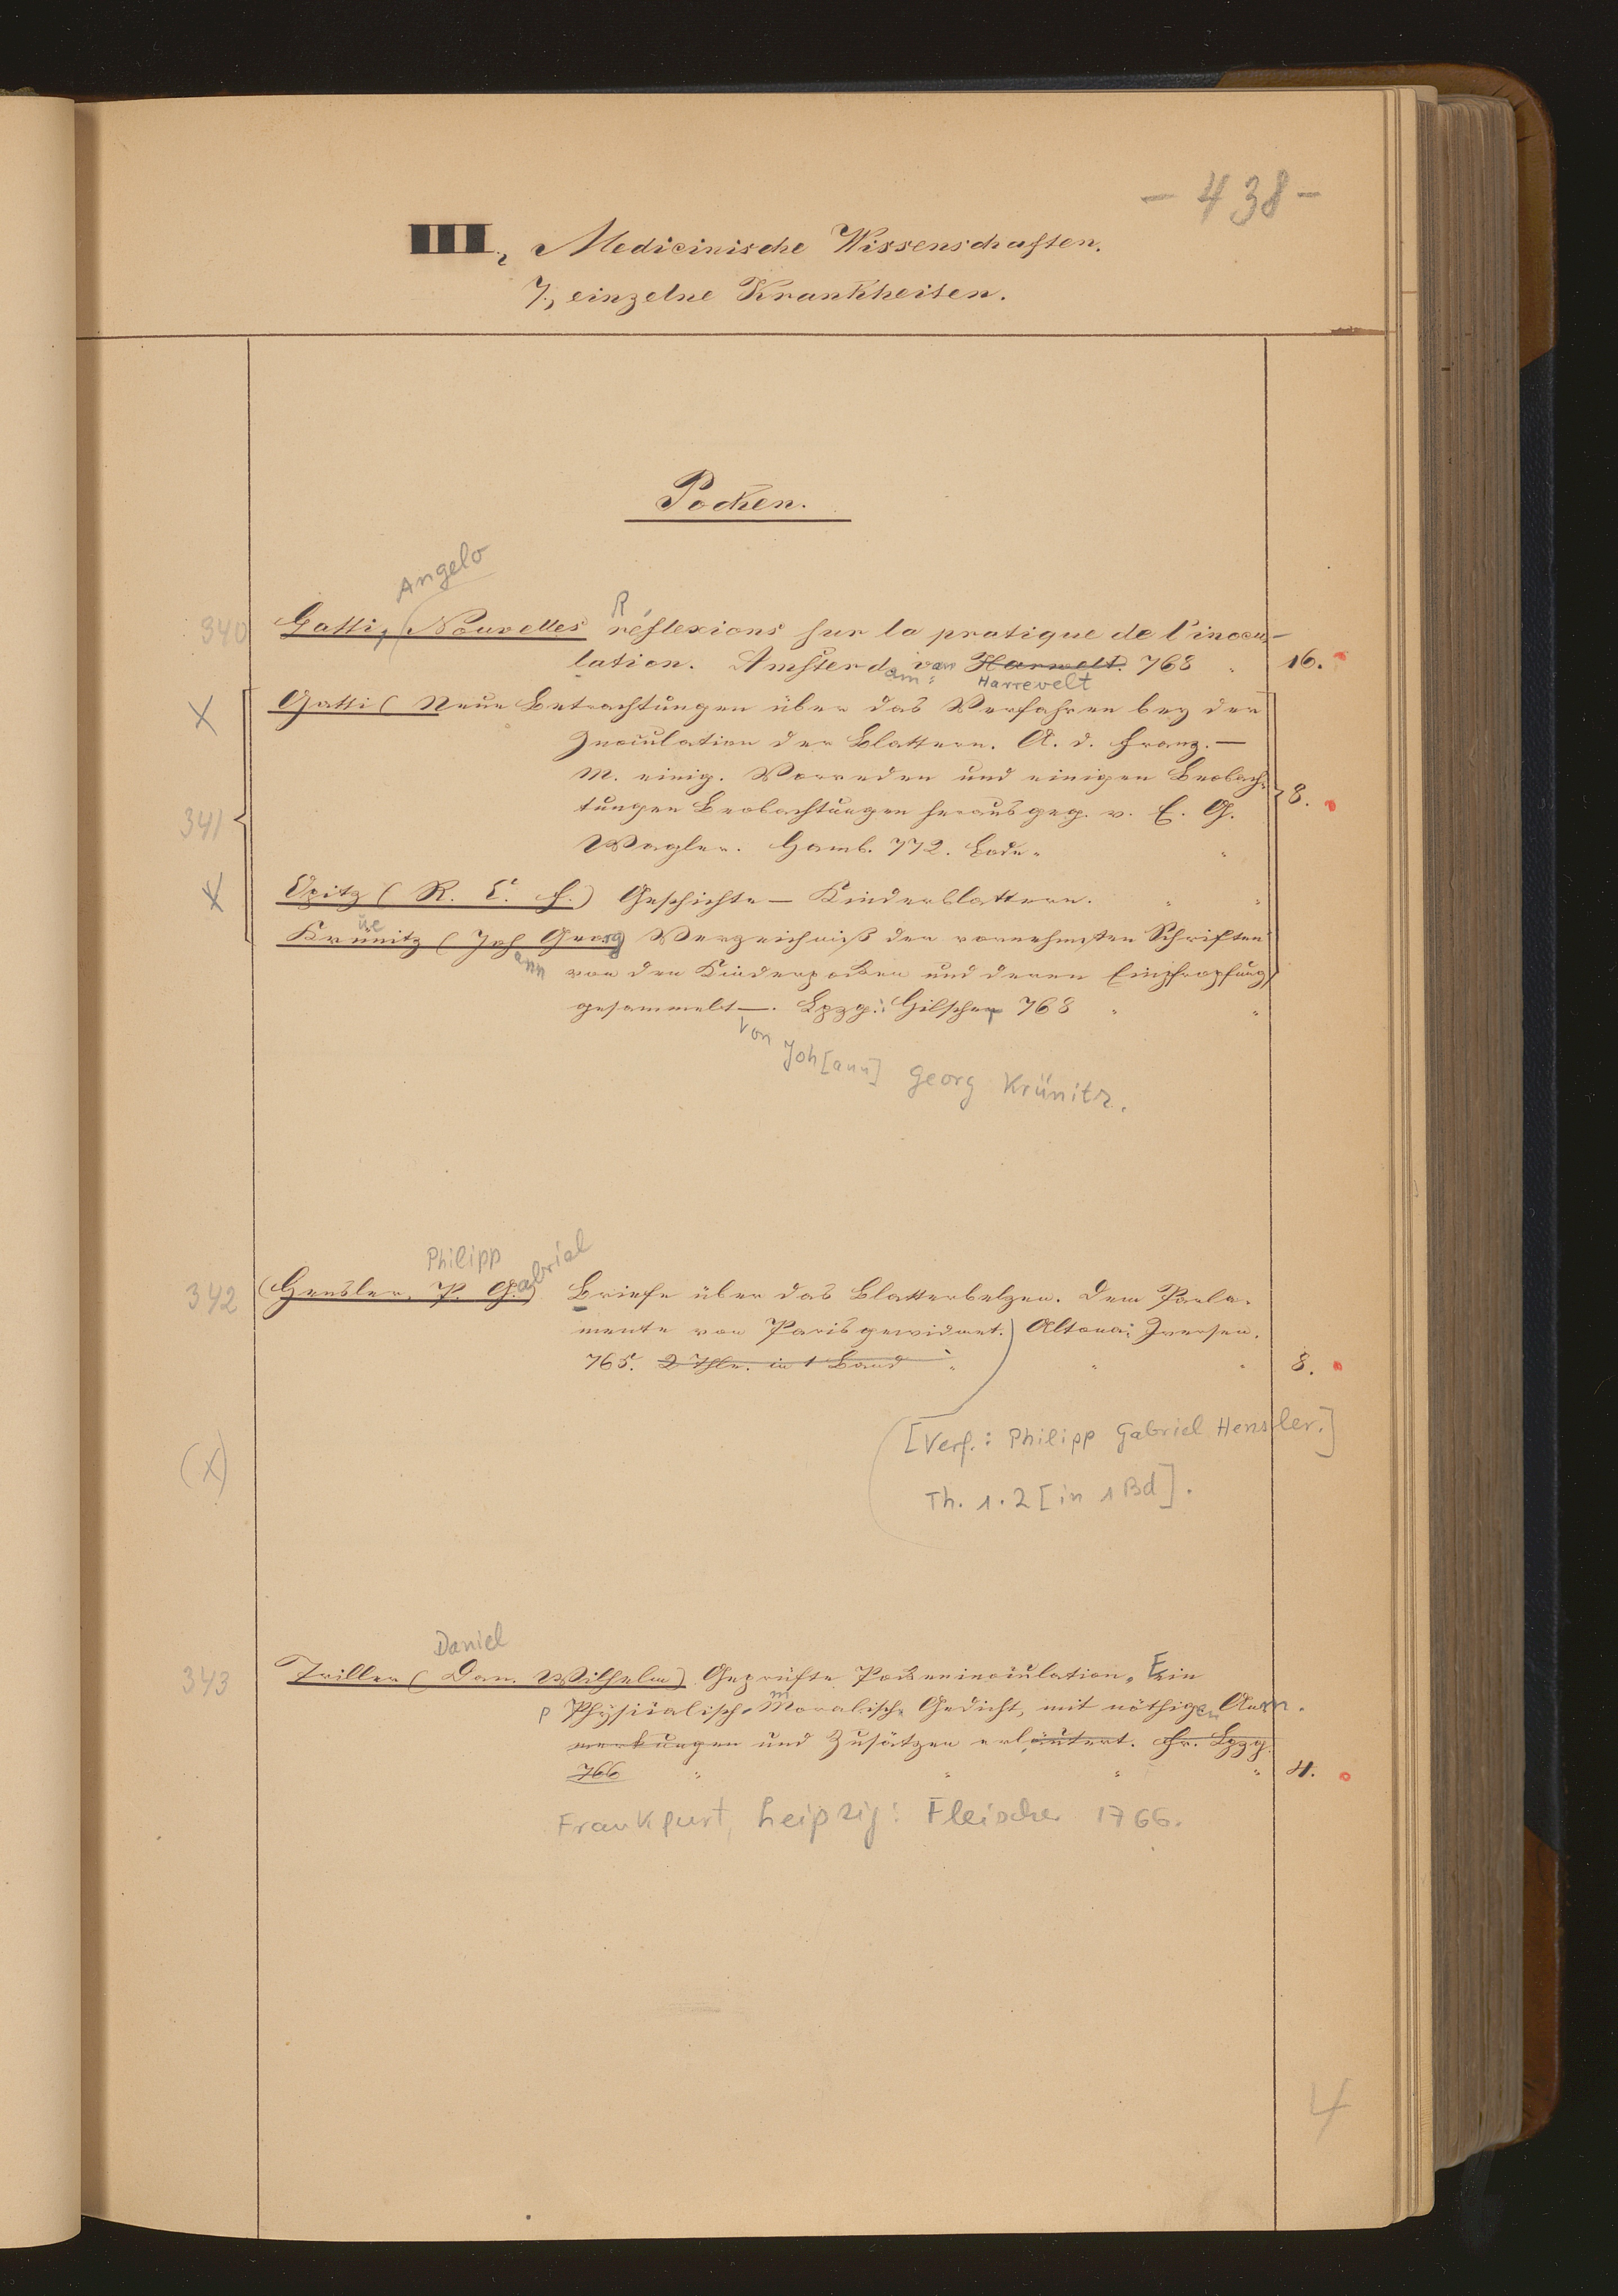 - 438 -
III., Medicinische Wissenschaften.
7., einzelne Krankheiten.
Pocken.
Angelo
R
340 Gatti, (Nouvelles réflexions sur la pratique de l'inocu-
lation. Amsterdam: van Harwelt. 768 " 16.
Harrevelt
X Gatti ( Neue Betrachtungen über das Verfahren bey der
Inoculation der Blattern. A. d. Franz. —
M. einig. Vorreden und einigen Beobach-
341 tungen Beobachtungen herausgeg. v. E. G. 8.
Wagler. Hamb. 772. Bode. "
X Opitz ( R. E. F.) Geschichte — Kinderblattern. " "
üe
Krünitz ( Joh Georg Verzeichniß der vornehmsten Schriften
ann von den Kinderpocken und deren Einpfropfung
gesammelt —. Lpzg: Hilscher 768 " "
von Joh[ann] Georg Krünitz.
Philipp Gabriel
342 (Hensler, P. G.) Briefe über das Blatterbelzen. Dem Parla-
mente von Paris gewidmet.) Altona: Iversen.
765. 2 Thle. in 1 Band " " " 8.
[Verf.: Philipp Gabriel Hensler.]
(X)
Th. 1. 2 [in 1 Bd].
Daniel
343 Triller ( Dan. Wilhelm) Geprüfte Pockeninoculation, Ein
p Physicalisch-Moralisch Gedicht, mit nöthigen Anm.
m
merkungen und Zusätzen erläutert. Fr. Lpzg.
766 " " " " 4.
Frankfurt, Leipzig: Fleischer 1766.
4